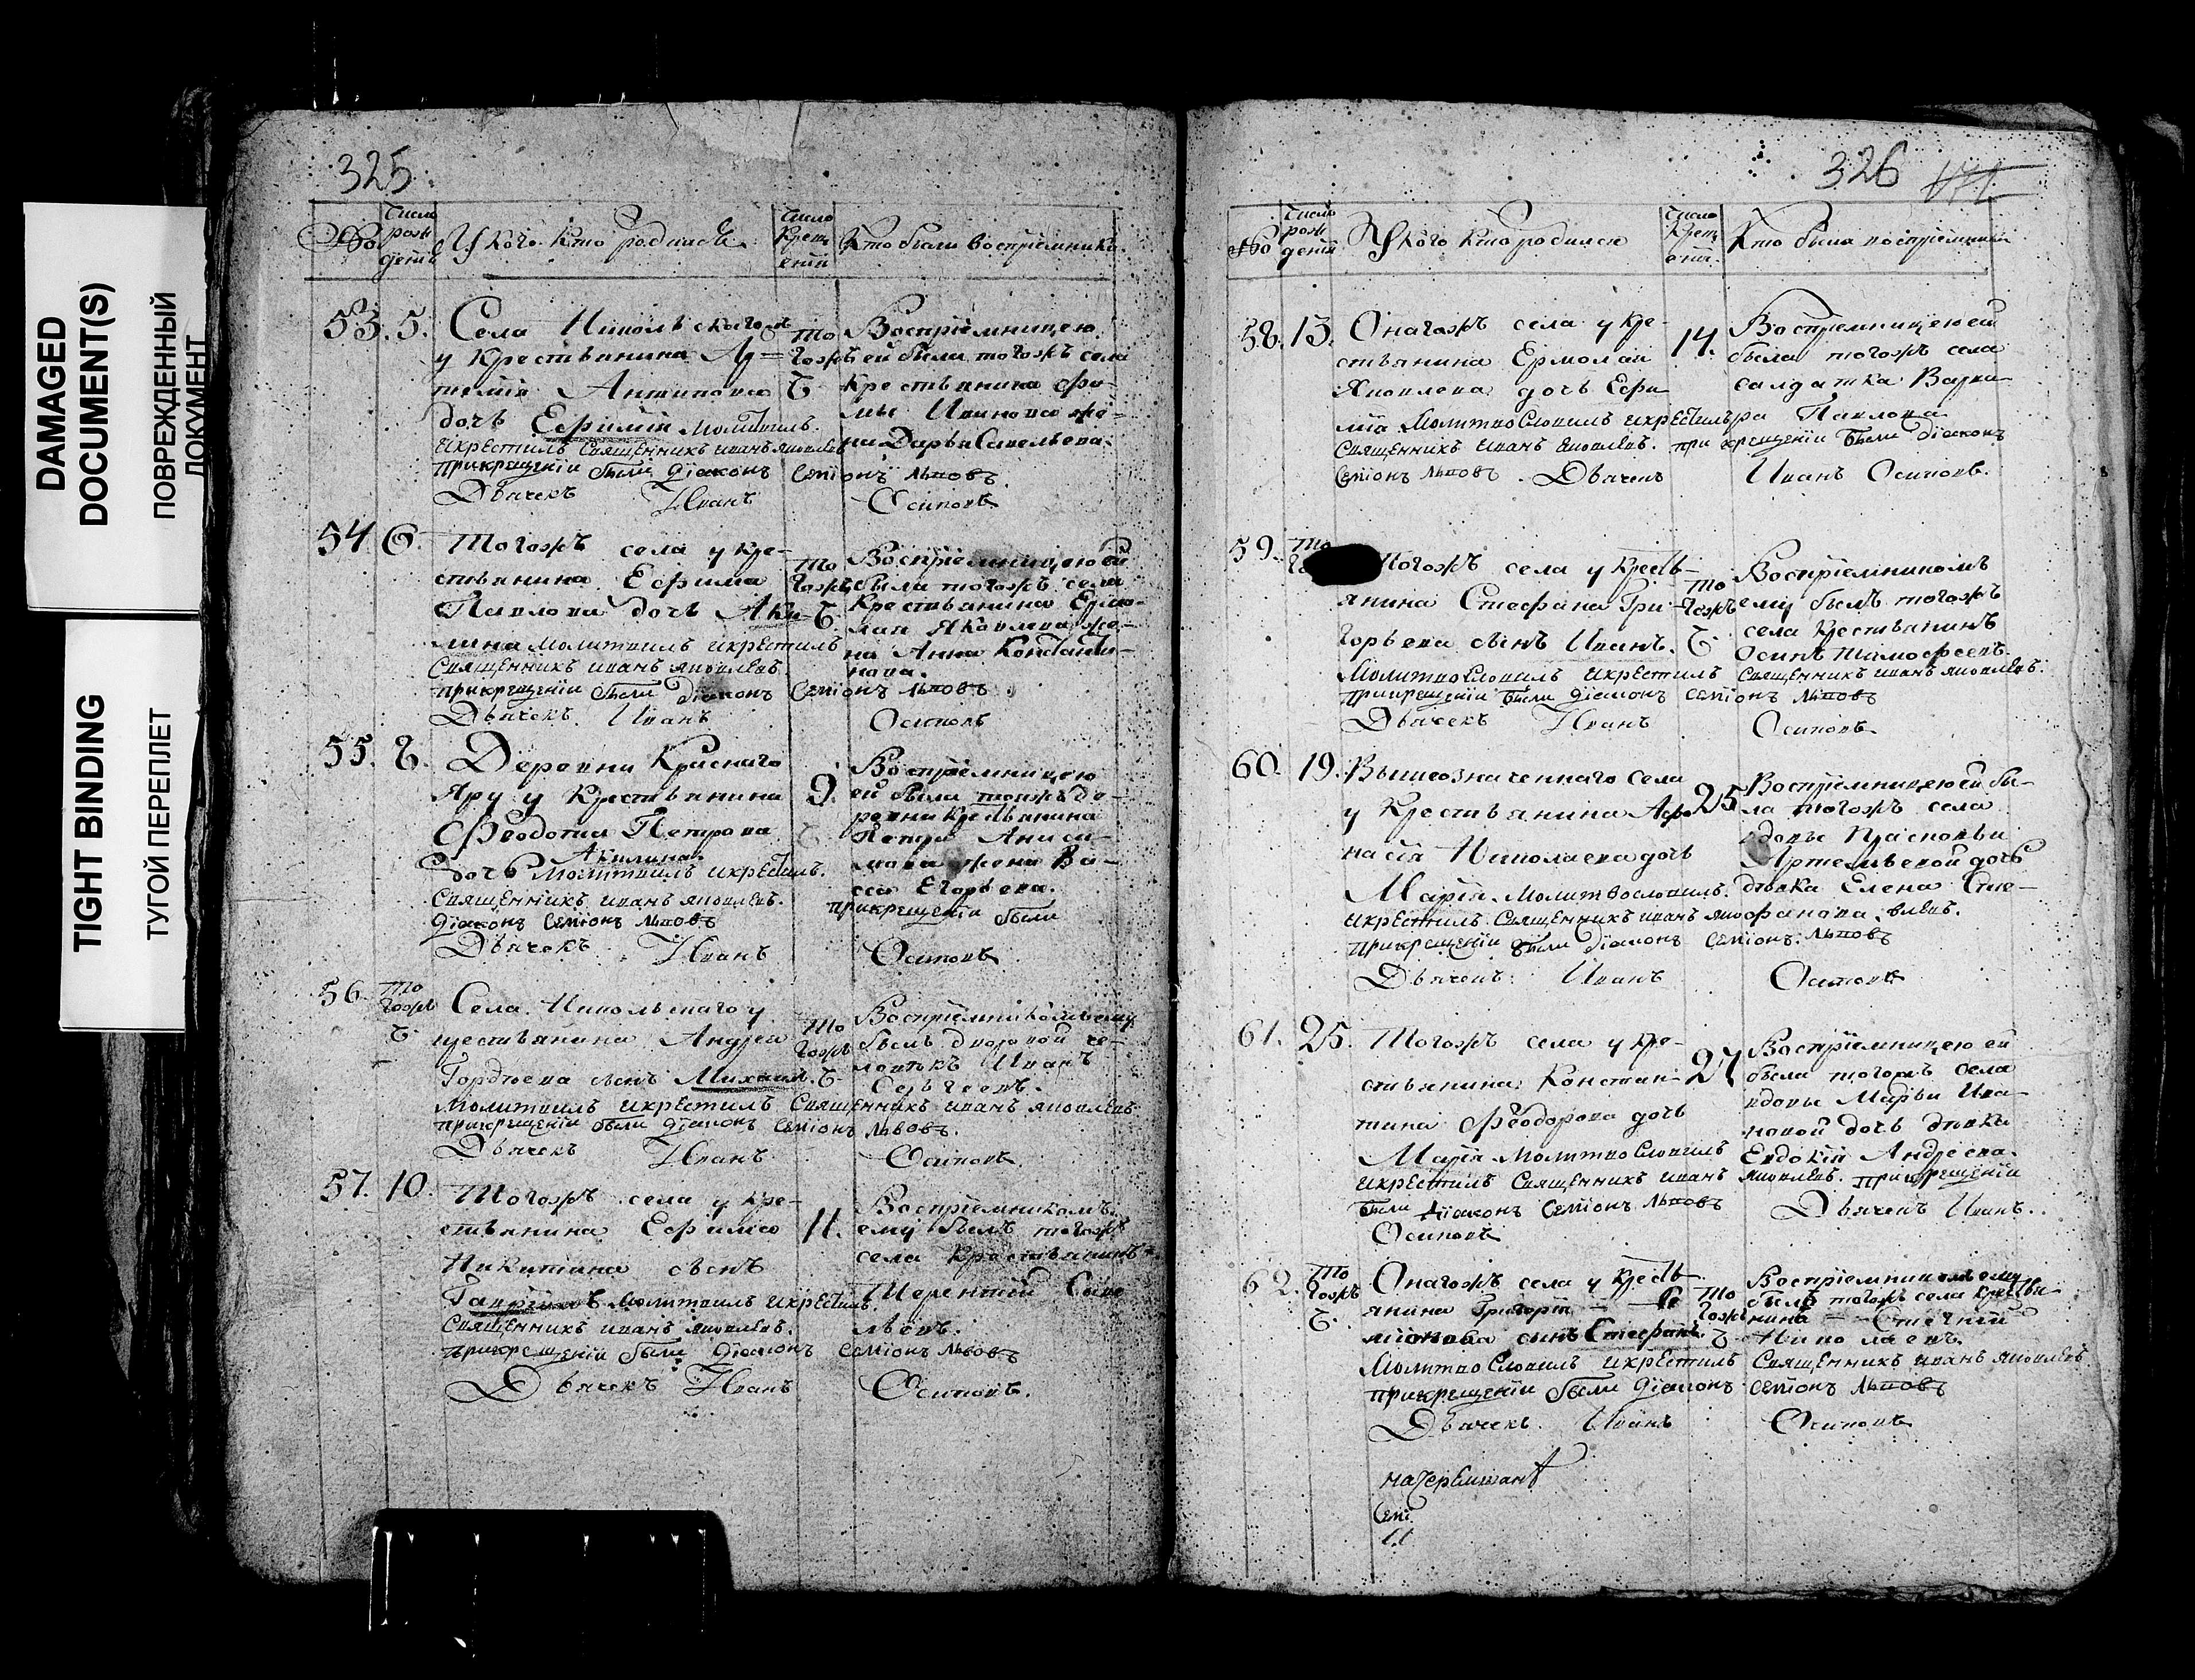 DAMAGED
DOCUMENT(S)
ПОВРЕЖДЕННЫЙ
ДОКУМЕНТ
TIGHT BINDING
ТУГОЙ ПЕРЕПЛЕТ
325
Число рож дения
У кого кто родился
Число Крещ ения
Кто были восприемники
53. 5. Села Никольскагожъ
у Крестьянина Ар=
темия Антипова
дочь Ефимия Молитвилъ
и крестилъ Священникъ иванъ яковлевъ
При крещении были диаконъ Семионъ львовъ
Дьячекъ Иванъ Осиповъ
То гожъ ч
Восприемницею
ей была тогожъ села
Крестьянина Фо-
мы Иванова же-
на Дарья Савельева
54. 6. Тогожъ села у кре-
стьянина Ефима
Павлова дочь Аки-
лина молитвилъ и крестилъ
Священникъ иванъ яковлевъ
при крещении были диаконъ Семионъ львовъ
Дьячекъ Иванъ Осиповъ
То гожъ ч.
Восприемницею ей
была тогожъ села
Крестьянина Ермо-
лая Яковлева же-
на Анна Константи-
нова.
55. 8. Деревни Краснаго
Яру у Крестьянина
Феодота Петрова
Акилина
дочь Молитвилъ и крестилъ
Священникъ иванъ яковлевъ.
диаконъ Семионъ львовъ
Дьячекъ Иванъ Осиповъ
9.
Восприемницею
ей была тоежъ де-
ревни крестьянина
Петра Аниси-
мова жена Ва-
сса Егорьева.
при крещении были
56. То гожъ ч. Села Никольскаго у
крестьянина Андрея
Гордеева сынъ Михаилъ
Молитвилъ и крестилъ Священникъ иванъ яковлевъ
при крещении были диаконъ Семионъ львовъ.
Дьячекъ Иванъ Осиповъ
То гожъ ч.
Восприемникомъ ему
былъ дворовой че-
ловекъ Иванъ
Сергеевъ.
57. 10. Тогожъ села у кре-
стьянина Ефима
Никитина сынъ
Гавриилъ молитвилъ и крестилъ
Священникъ иванъ яковлевъ.
при крещении были диаконъ Семионъ львовъ
Дьячекъ Иванъ Осиповъ.
11.
Восприемникомъ
ему былъ тогожъ
села Крестьянинъ
Терентий Саве
льевъ.
326
Число рож дения
У кого кто родился
Число Крещ ения
Кто были восприемники
58. 13. Онагожъ села у кре-
стьянина Ермолаи
Яковлева дочь Ефи-
мия Молитвословилъ и крестилъ
Священникъ иванъ яковлевъ. при крещении были диаконъ
Семионъ львовъ. Дьячекъ Иванъ Осиповъ.
14.
Восприемницею ей
была тогожъ села
салдатка Варва-
ра Павлова
59. То Тогожъ села у крестъ-
янина Стефана Гри-
горьева сынъ Иванъ.
Молитвословилъ и крестилъ Священникъ иванъ яковлевъ.
при крещении были диаконъ Семионъ львовъ
Дьячекъ Иванъ Осиповъ
То гожъ ч.
Восприемникомъ
ему былъ тогожъ
села Крестьянинъ
Осипъ Тимофеевъ.
60. 19. Вышеозначеннаго села
у Крестьянина Афо-
насия Николаева дочь
Мария. Молитвословилъ.
и крестилъ Священникъ иванъ яковлевъ.
При крещении были диаконъ Семионъ львовъ
Дьячекъ Иванъ Осиповъ
25
Восприемницею ей бы-
ла тогожъ села
вдовы Прасковьи
Артемьевой дочь
девка Елена Сте-
фанова.
61. 25. Тогожъ села у кре-
стьянина Констан-
тина Феодорова дочь
Мария Молитвословилъ
и крестилъ Священникъ иванъ яковлевъ. при крещении
были диаконъ Семионъ львовъ Дьячекъ Иванъ.
Осиповъ
27
Восприемницею ей
была тогожъ села
вдовы Марьи Ива-
новой дочь девка
Евдокия Андреева.
62. То гожъ ч. Онагожъ села у крестъ-
янина Григорья Се
мионова сынъ Стефанъ
Молитвословилъ и крестилъ Священникъ иванъ яковлевъ
при крещении были диаконъ Семионъ львовъ
Дьячекъ Иванъ Осиповъ
То гожъ ч
Восприемникомъ ему
былъ тогожъ села крестья-
нинъ
Николаевъ.
Семи